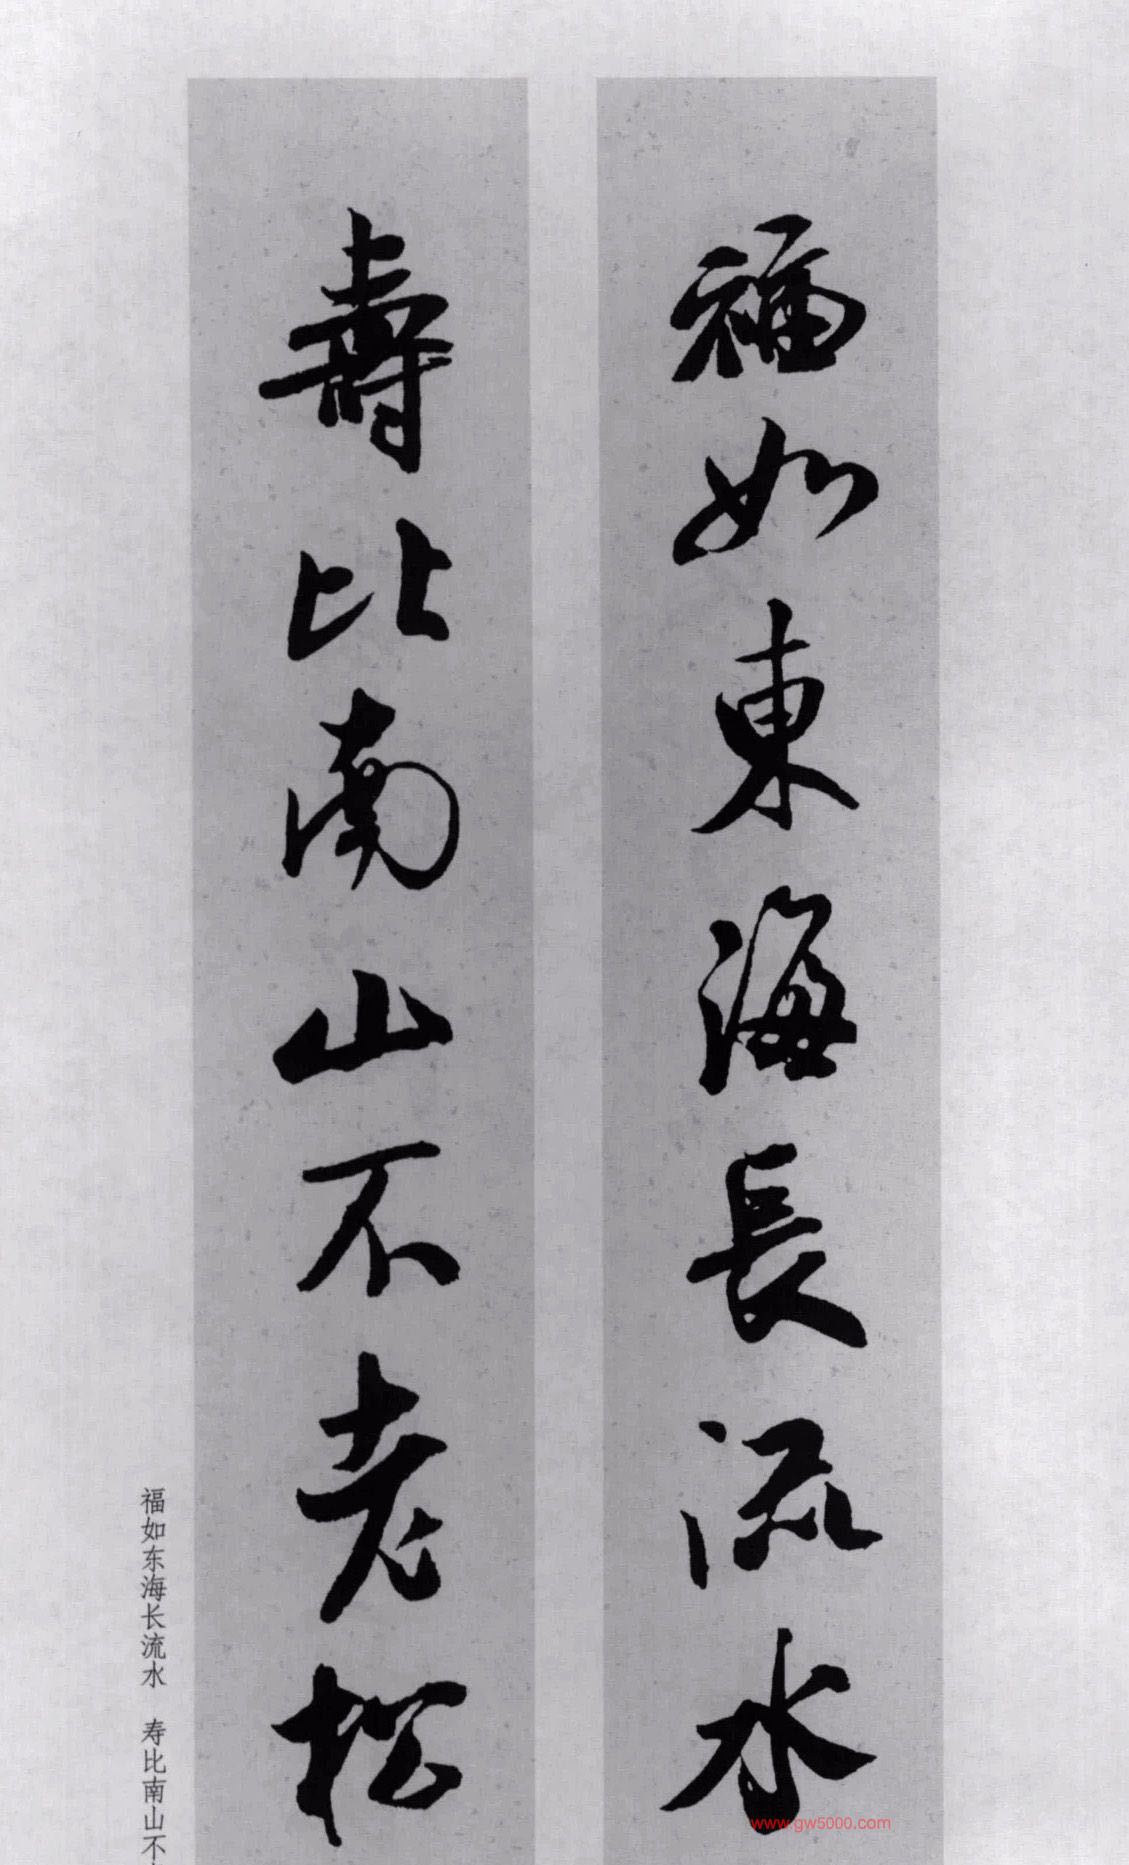 福如東海長流水
壽比南山不老松
福如东海长流水 寿比南山不
www.gw5000.com